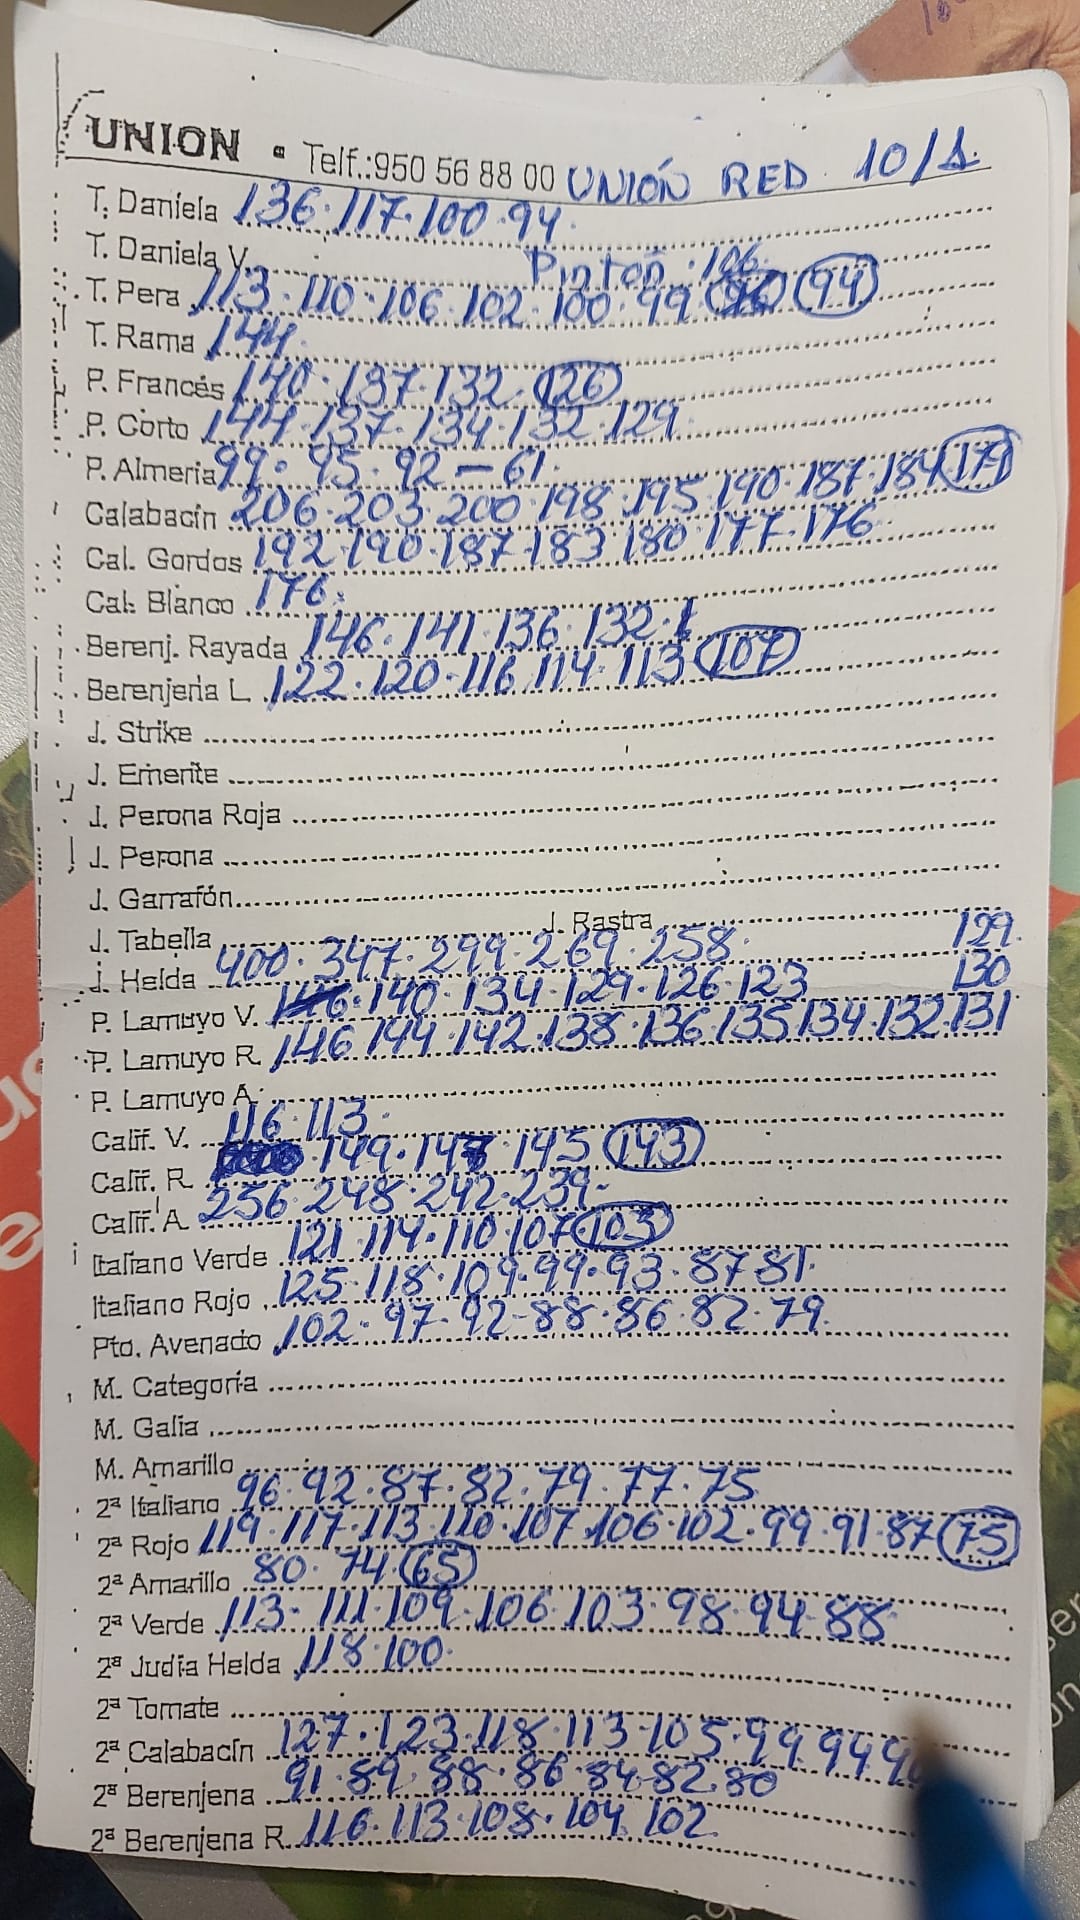 UNION - Telf.:950 56 88 00 UNIÓN RED 10/1.
T. Daniela 136.117.100.94.
T. Daniela V. Pinton.106.
T. Pera 113.110.106.102.100.99 94
T. Rama 144.
P. Francés 140.137.132.126
P. Corto 144.137.134.132.129.
P. Almería 99.95.92-61.
Calabacín 206.203.200.198.195.190.187.184 171
Cal. Gordos 192.190.187.183.180.177.176.
Cal. Blanco 176.
Berenj. Rayada 146.141.136.132.
Berenjena L. 122.120.116.114.113 107
J. Strike
J. Emerite
J. Perona Roja
J. Perona
J. Garrafón
J. Tabella J. Rastra 129.
J. Helda 400.347.299.269.258. 130
P. Lamuyo V. 146.140.134.129.126.123
P. Lamuyo R. 146.144.142.138.136.135.134.132.131
P. Lamuyo A.
Calif. V. 116.113.
Calif. R. 149.147.145 143
Calif. A. 256.248.242.239.
Italiano Verde 121.114.110.107 103
Italiano Rojo 125.118.109.99.93.87.81.
Pto. Avenado 102.97.92-88.86.82.79.
M. Categoría
M. Galia
M. Amarillo
2ª Italiano 96.92.87.82.79.77.75
2ª Rojo 119.117.113.110.107.106.102.99.91.87 75
2ª Amarillo 80.74 65
2ª Verde 113.111.109.106.103.98.94.88
2ª Judía Helda 118.100.
2ª Tomate
2ª Calabacín 127.123.118.113.105.99.94
2ª Berenjena 91.89.88.86.84.82.80
2ª Berenjena R. 116.113.108.104.102